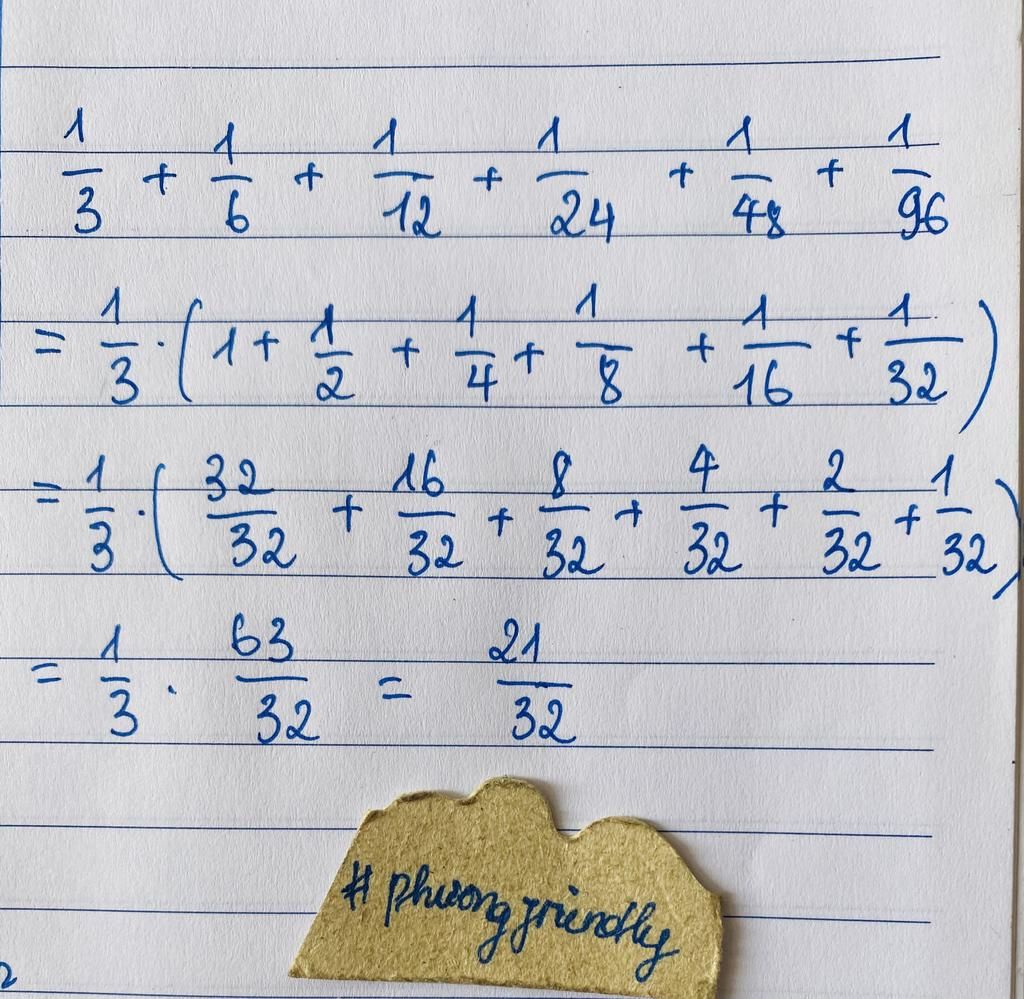 1/3 + 1/6 + 1/12 + 1/24 + 1/48 + 1/96
= 1/3 . ( 1 + 1/2 + 1/4 + 1/8 + 1/16 + 1/32 )
= 1/3 . ( 32/32 + 16/32 + 8/32 + 4/32 + 2/32 + 1/32 )
= 1/3 . 63/32 = 21/32